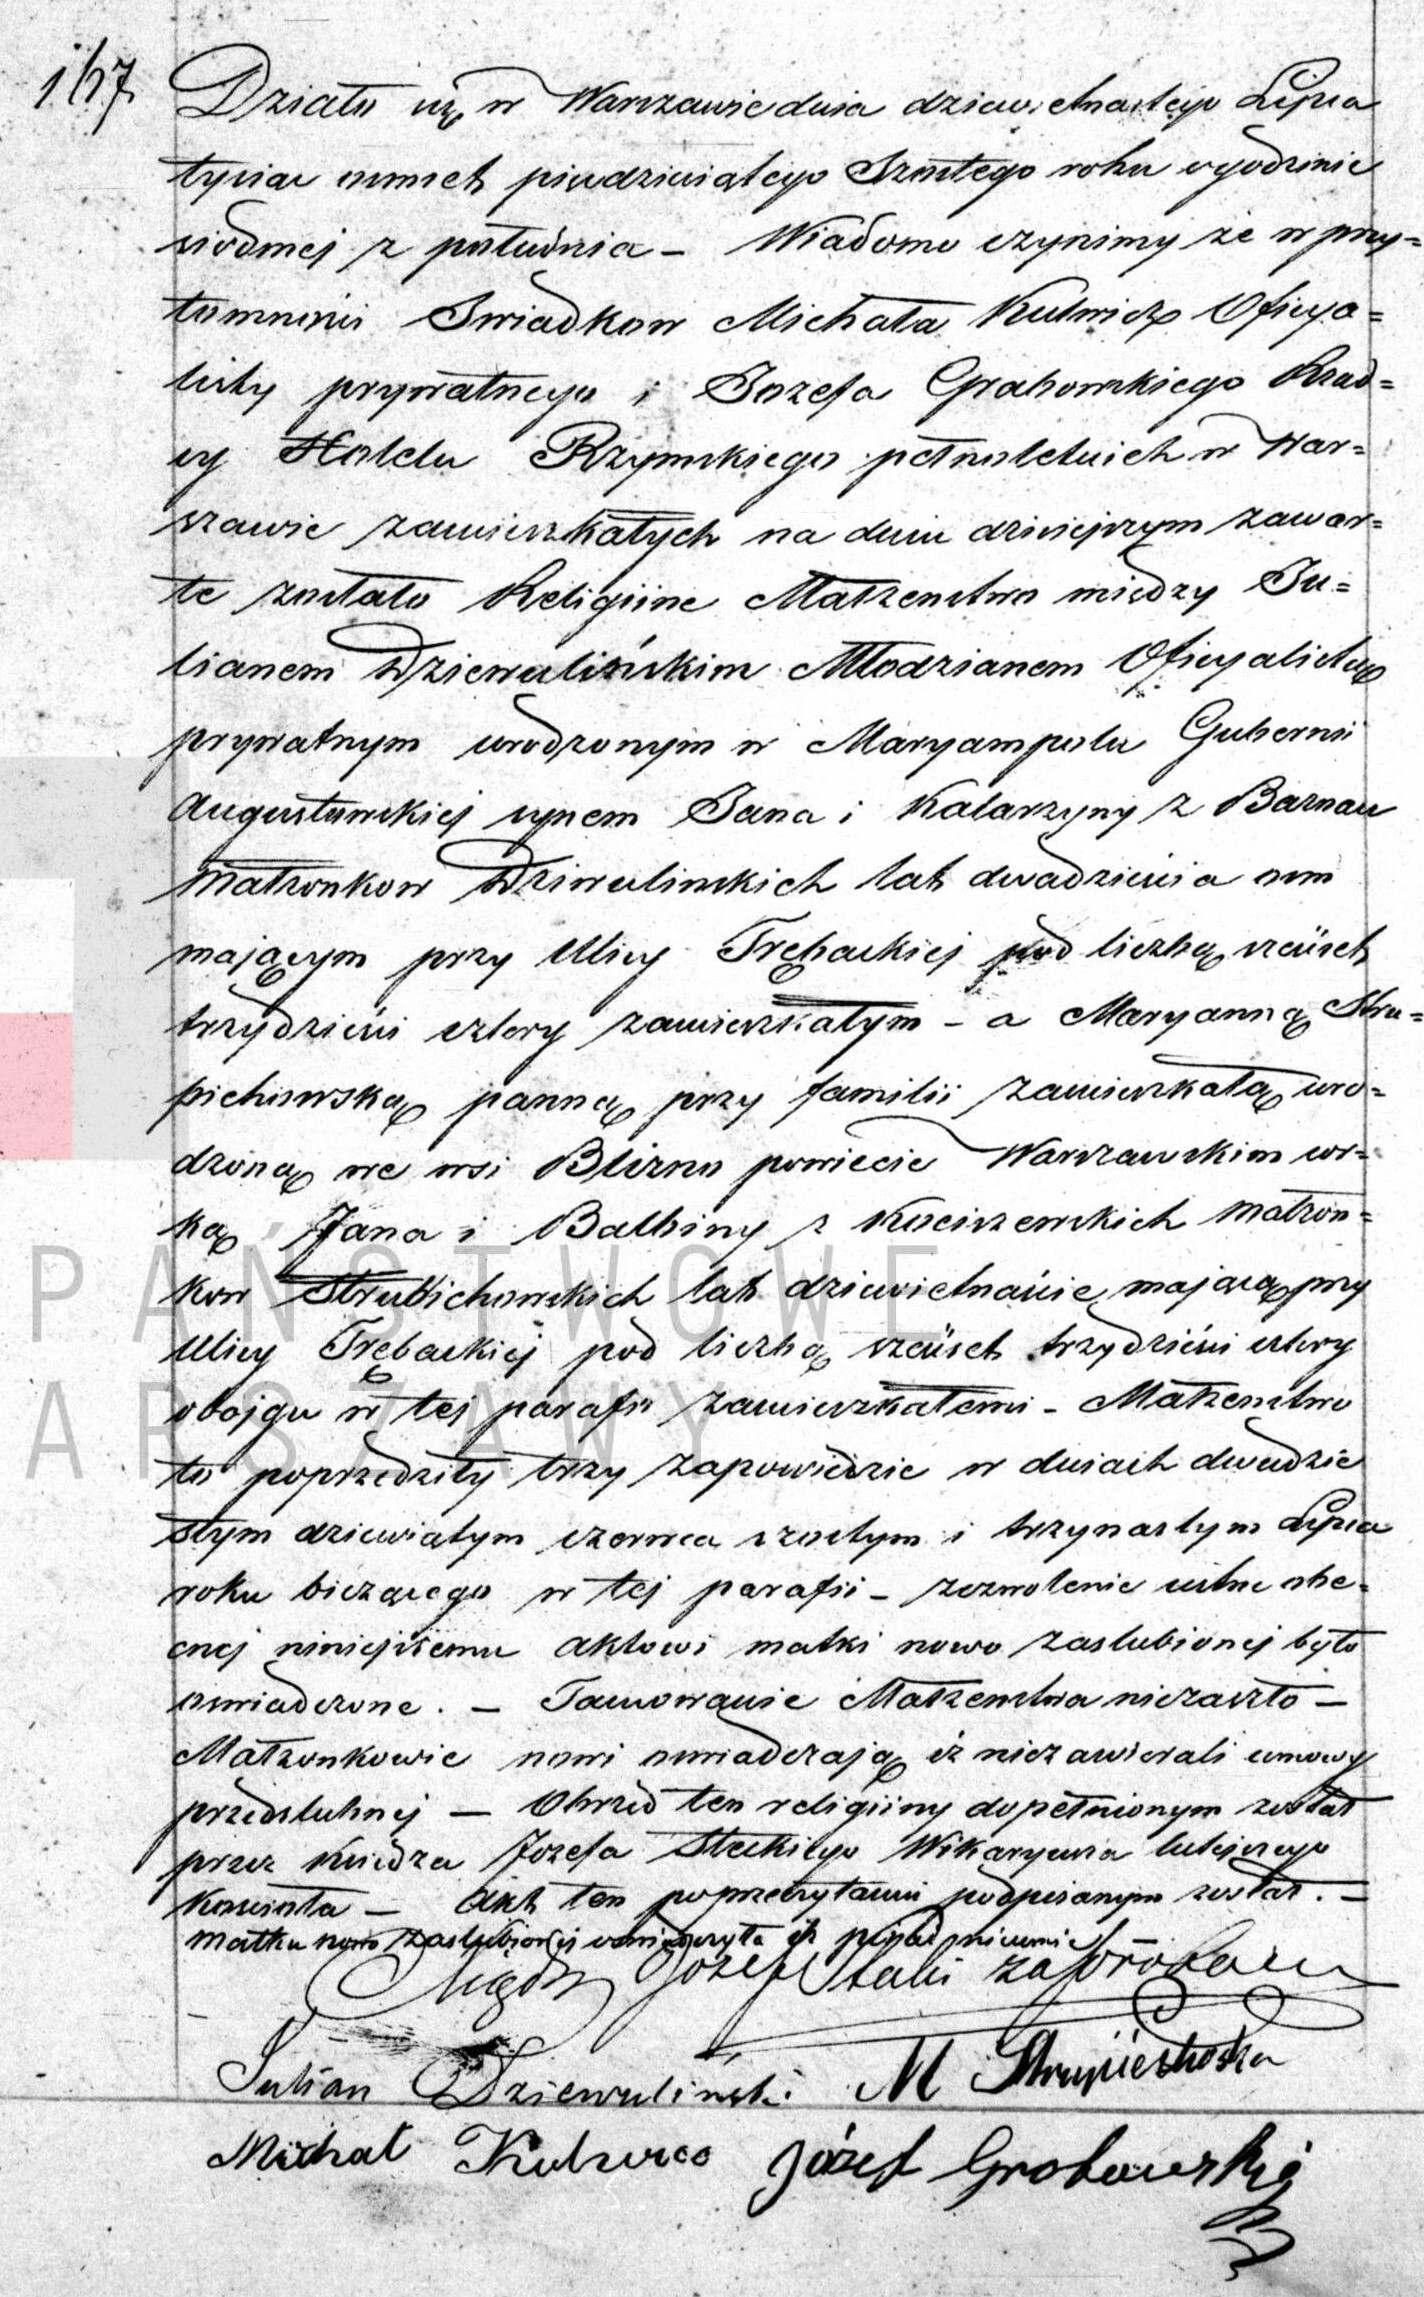 167
Działo się w Warszawie dnia dziewietnastego Lipca
tysiac osmset piedziesiątego Szostego roku o godzinie
siodmej z południa – Wiadomo czynimy że w przy=
tomnosci Swiadkow Michała Kulwicz Oficya=
listy prywatnego i Jozefa Grabowskiego Rząd=
cy Hotelu Rzymskiego pełnoletnich w War=
szawie zamieszkałych na dniu dzisiejszym zawar=
te zostało Religiine Małzenstwo między Ju=
lianem Dziewulińskim Młodzianem Oficyalistą
prywatnym urodzonym w Maryampolu Gubernii
Augustowskiej synem Jana i Katarzyny z Baznau
Małzonkow Dziewulinskich lat dwadzieścia osm
mającym przy Ulicy Trębackiej pod liczbą szcüset
trzydzieści cztery zamieszkałym – a Maryanną Stru=
pichowską panną przy familii zamieszkałą uro=
dzoną we wsi Blizno powiecie Warszawskim cor=
ką Jana i Balbiny z Kociszewskich Małzon=
kow Strubichowskich lat dziewietnaście mającą przy
Ulicy Trębackiej pod liczbą szcüset trzydzieści cztery
obojgu w tej parafii zamieszkałemi – Małzenstwo
to poprzedziły trzy zapowiedzie w dniach dwudzie
stym dziewiątym czerwca szostym i trzynastym Lipca
roku biezącego w tej parafii – zezwolenie ustne obe=
cnej niniejszemu aktowi matki nowo zaslubionej było
oswiadczone. – Tamowanie Małzenstwa niezaszło –
Małzonkowie nowi oswiadczają iż niezawierali umowy
przedslubnej – Obrzęd ten religiiny dopełnionym został
przez Księdza Jozefa Steckiego Wikaryusza tutejszego
Koscioła – Akt ten po przeczytaniu podpisanym został. –
matka nowo zaslubionej oswiadczyła iż pisać nieumie
Jozef Stecki za proboszcza
Julian Dziewuliński M Strupiechoska
Michał Kulwicz Józef Grabowski